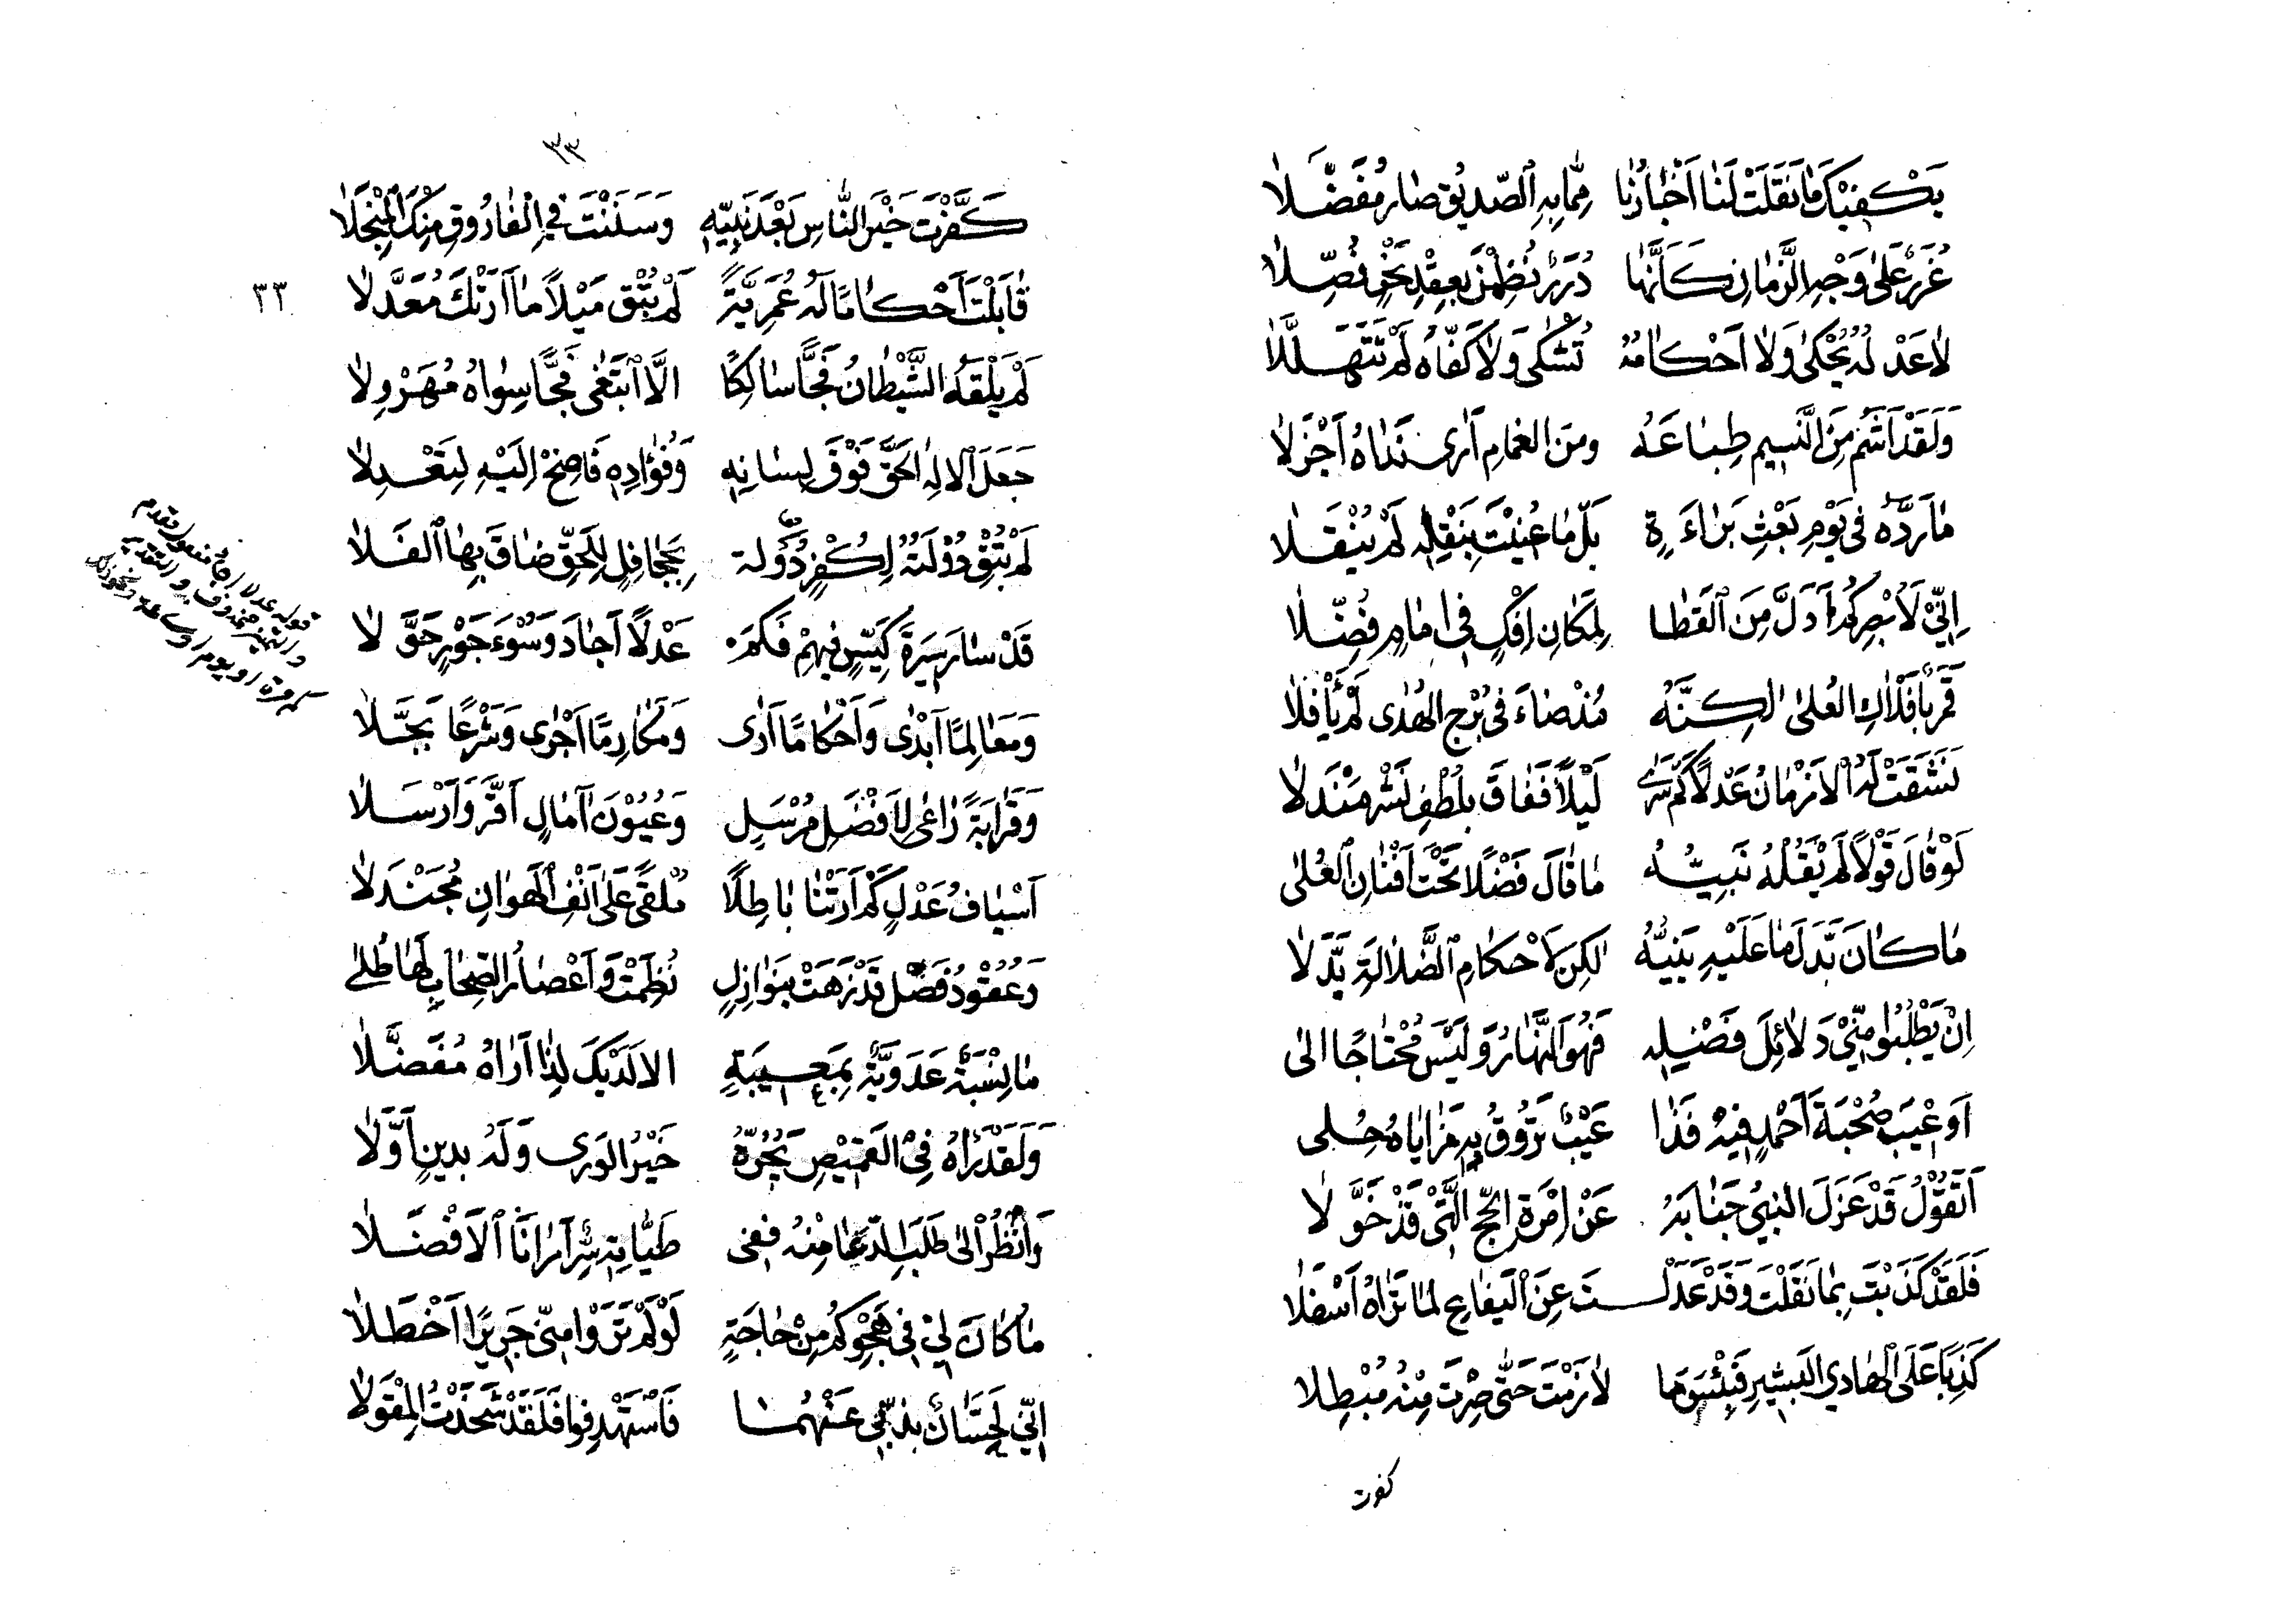 يَكْفِيْكَ مَا نَقَلَتْ لَنَا أَخْبَارُنَا مِمَّا بِهِ الصّدِيْق صَارَ مُفَضَّلَا
غُرَرٌ عَلَى وَجْهِ الزَّمَانِ كَأَنَّهَا دُرَرٌ نُظِمْنَ بِعِقْدِ نَحْرٍ فُصِّلَا
لَا عَدْلُهُ يُحْكَى وَلَا اَحْكَامُهُ تُشْكَى وَلَا كَفَّاهُ لَمْ تَتَهَلَّلَا
وَلَقَدْ اَشَمُّ مِنَ النَّسِيمِ طِبَاعَهُ ومن الغمامِ أَرى نَدَاهُ أَجْزَلَا
مَا رَدَّهُ فى يَوْمِ بَعْثِ بَرَاءَةٍ بَلْ مَا عُنِيْتَ بِنَقْلِهِ لَمْ يُنْقَلَا
اِنِّيْ لَأُبْصِرُكُمْ أَدَلَّ مِنَ القَطَا لِمَكَانِ اِفْكٍ فى اِمَامٍ فُضِّلَا
قَمَرٌ بِأَفْلَاكِ العُلَى لكِنَّهُ مُذْ ضَاءَ فى بُرْجِ الهُدَى لَمْ يَأْفُلَا
نَشَقَتْ لَهُ الأَزْمَانُ عَدْلًا كَمْ سَرَى لَيْلًا فَفَاقَ بِلُطْفِ نَشْرٍ مَنْدَلَا
لَوْ قَالَ قَوْلًا لَمْ يَقُلْهُ نَبِيُّهُ مَا قَالَ فَضْلًا تَحْتَ أَفْنَانِ العُلَى
مَا كَانَ بَدَّلَ مَا عَلَيْهِ نَبِيُّهُ لكِن لَأَحْكَامِ الضَّلَالَةِ بَدَّلَا
اِنْ يَطْلُبُوا مِنِّيْ دَلَائِلَ فَضْلِهِ فَهُوَ النَّهَارُ وَلَيْسَ مُحْتَاجًا الى
اَوْ عِيْبَ صُحْبَةُ أَحْمَدٍ فِيهِ فَذَا عَيْبٌ تَرُوقُ بِهِ مَزَايَاهُ حُلى
اَتَقُوْلُ قَدْ عَزَلَ النبيُّ جَنَابَهُ عَنْ اِمْرَةِ الحَجِّ الَّتِيْ قَدْ خَوَّلَا
فَلَقَدْ كَذَبْتَ بِمَا نَقَلْتَ وَقَدْ عَدَلْتَ عَنِ اليَفَاعِ لما تَرَاهُ اَسْفَلَا
كَذِبًا عَلَى الهَادي البَشِيرِ فَبِئْسَ مَا لَازَمْتَ حَتَّى صِرْتَ مِنْهُ مُبْطِلَا
كفرت
٣٣
كَفَّرْتَ خَيْرَ النَّاسِ بَعْدَ نَبِيِّهِ وَسَنَنْتَ فِي الفَارُوقِ مِنْكَ المِنْجَلَا
٣٣
قَابَلْتَ أَحْكَامًا لَهُ عُمَرِيَّةً لَمْ تُبْقِ مَيْلًا مَا أَرَتْكَ مُعَدَّلَا
لَمْ يَلْقَهُ الشَّيْطَانُ فَجًّا سَالِكًا الَّا ابْتَغَى فَجًّا سِوَاهُ مُهَرْوِلَا
جَعَلَ الالهُ الحَقَّ فَوْقَ لِسَانِهِ وَفُؤَادِهِ فَاصِخْ اِلَيْهِ لِتَعْدِلَا
لَمْ تُبْقِ دَوْلَتُهُ لِكُفْرٍ دَوْلَةً بِجَحَافِلٍ لِلْحَقِّ ضَاقَ بِهَا الفَلَا
قَدْ سَارَ سِيْرَةَ كَيِّسٍ فِيهِمْ فَكَمْ عَدْلًا أَجَادَ وَسُوْءَ جَوْرٍ حَوَّلَا
وَمَعَالِمًا أَبْدَى وَأَحْكَامًا أَرَى وَمَكَارِمًا أَجْرَى وَشَرْعًا بَجَّلَا
وَقَرَابَةً رَاعَى لِأَفْضَلِ مُرْسَلٍ وَعُيُوْنَ آمَالٍ أَقَرَّ وَأَرْسَلَا
أَسْيَافُ عَدْلٍ كَمْ أَرَتْنَا بَاطِلًا مُلْقًى عَلَى اَنْفِ الهَوَانِ مُجَنْدَلَا
وَعُقُوْدُ فَضْلٍ قَدْ زَهَتْ بِنَوَازِلٍ نُظِمَتْ وَاَعْصَارُ الصِّحَابِ لَهَا طُلَى
مَا نِسْبَةٌ عَدَوِيَّةٌ بِمَعِيبَةٍ الا لَدَيْكَ لِذَا أَرَاهُ مُفَضَّلَا
وَلَقَدْ رَآهُ فِى القَمِيْصِ يَجُرُّهُ خَيْرُ الوَرَى وَلَهُ بِدِينٍ أَوَّلَا
وَانْظُرْ الى طَلَبِ الدُّعَا مِنْهُ ففى طَيَّاتِهِ سِرٌّ أَرَانَا الأَفْضَلَا
مَا كَانَ لِيْ فِى هَجْوِكُمْ مِنْ حَاجَةٍ لَوْ لَمْ تَرَوْا مِنِّي جَرِيرًا اَخْطَلَا
اِنِّي لَحَسَّانٌ بِذَبِّي عَنْهُمَا فَاسْتَهْدِفُوا فَلَقَدْ شَحَذْتُ المِقْوَلَا
قوله عدلا اجاد مفعول مقدم
والتمييز محذوف والتقدير